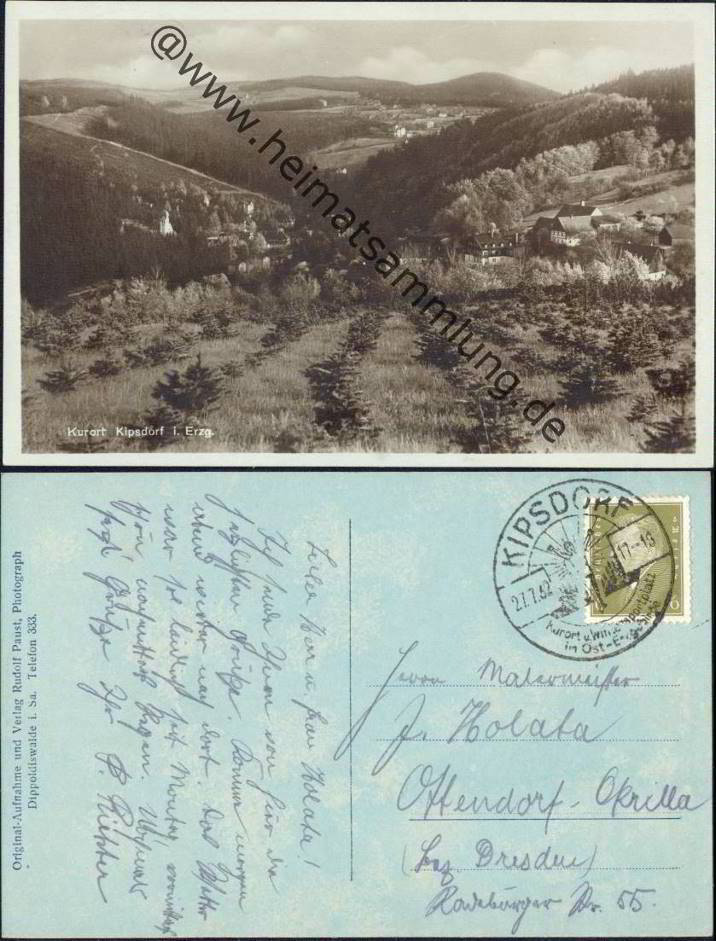 @www.heimatsammlung.de
Kurort Kipsdorf i. Erzg.
Original-Aufnahme und Verlag Rudolf Paust, Photograph
Dippoldiswalde i. Sa. Telefon 333.
Lieber Herr u. Frau Holata!
Ich sende Ihnen von hier die
herzlichsten Grüße. Komme morgen
abend wieder nach dort. Das Wetter
war bis seit Montag
Regen.
Grüße Ihr
KIPSDORF
27.7.32
17-18
Kurort u. Wintersportplatz
im Ost-Erzgebirge
Herrn Malermeister
J. Holata
Ottendorf-Okrilla
(Bez. Dresden)
Radeburger Str. 55.